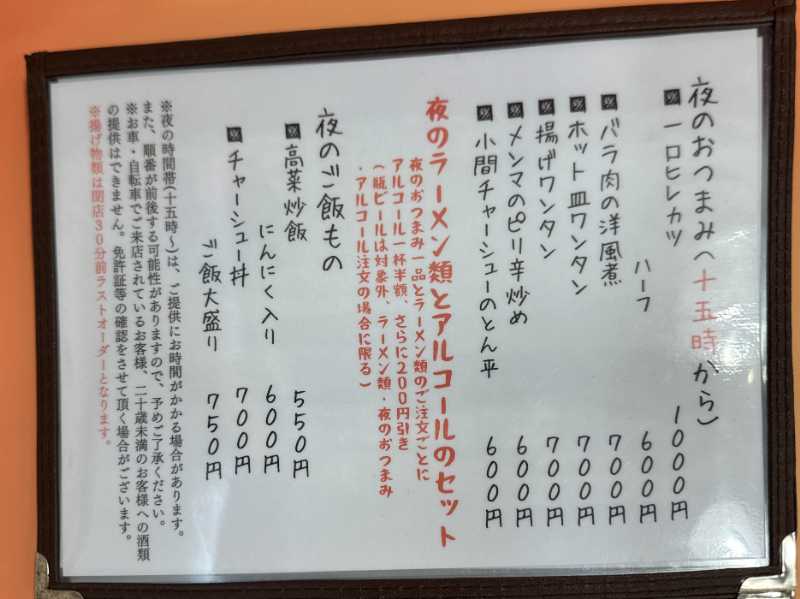 夜のおつまみ(十五時から)
夜 一口ヒレカツ 1000円
ハーフ 600円
夜 バラ肉の洋風煮 700円
夜 ホット皿ワンタン 700円
夜 揚げワンタン 700円
夜 メンマのピリ辛炒め 600円
夜 小間チャーシューのとん平 600円
夜のラーメン類とアルコールのセット
夜のおつまみ一品とラーメン類のご注文ごとに
アルコール一杯半額、さらに200円引き
(瓶ビールは対象外、ラーメン類・夜のおつまみ
・アルコール注文の場合に限る)
夜のご飯もの
夜 高菜炒飯 550円
にんにく入り 600円
夜 チャーシュー丼 700円
ご飯大盛り 750円
※夜の時間帯(十五時〜)は、ご提供にお時間がかかる場合があります。
また、順番が前後する可能性がありますので、予めご了承ください。
※お車・自転車でご来店されているお客様、二十歳未満のお客様への酒類
の提供はできません。免許証等の確認をさせて頂く場合がございます。
※揚げ物類は閉店30分前ラストオーダーとなります。